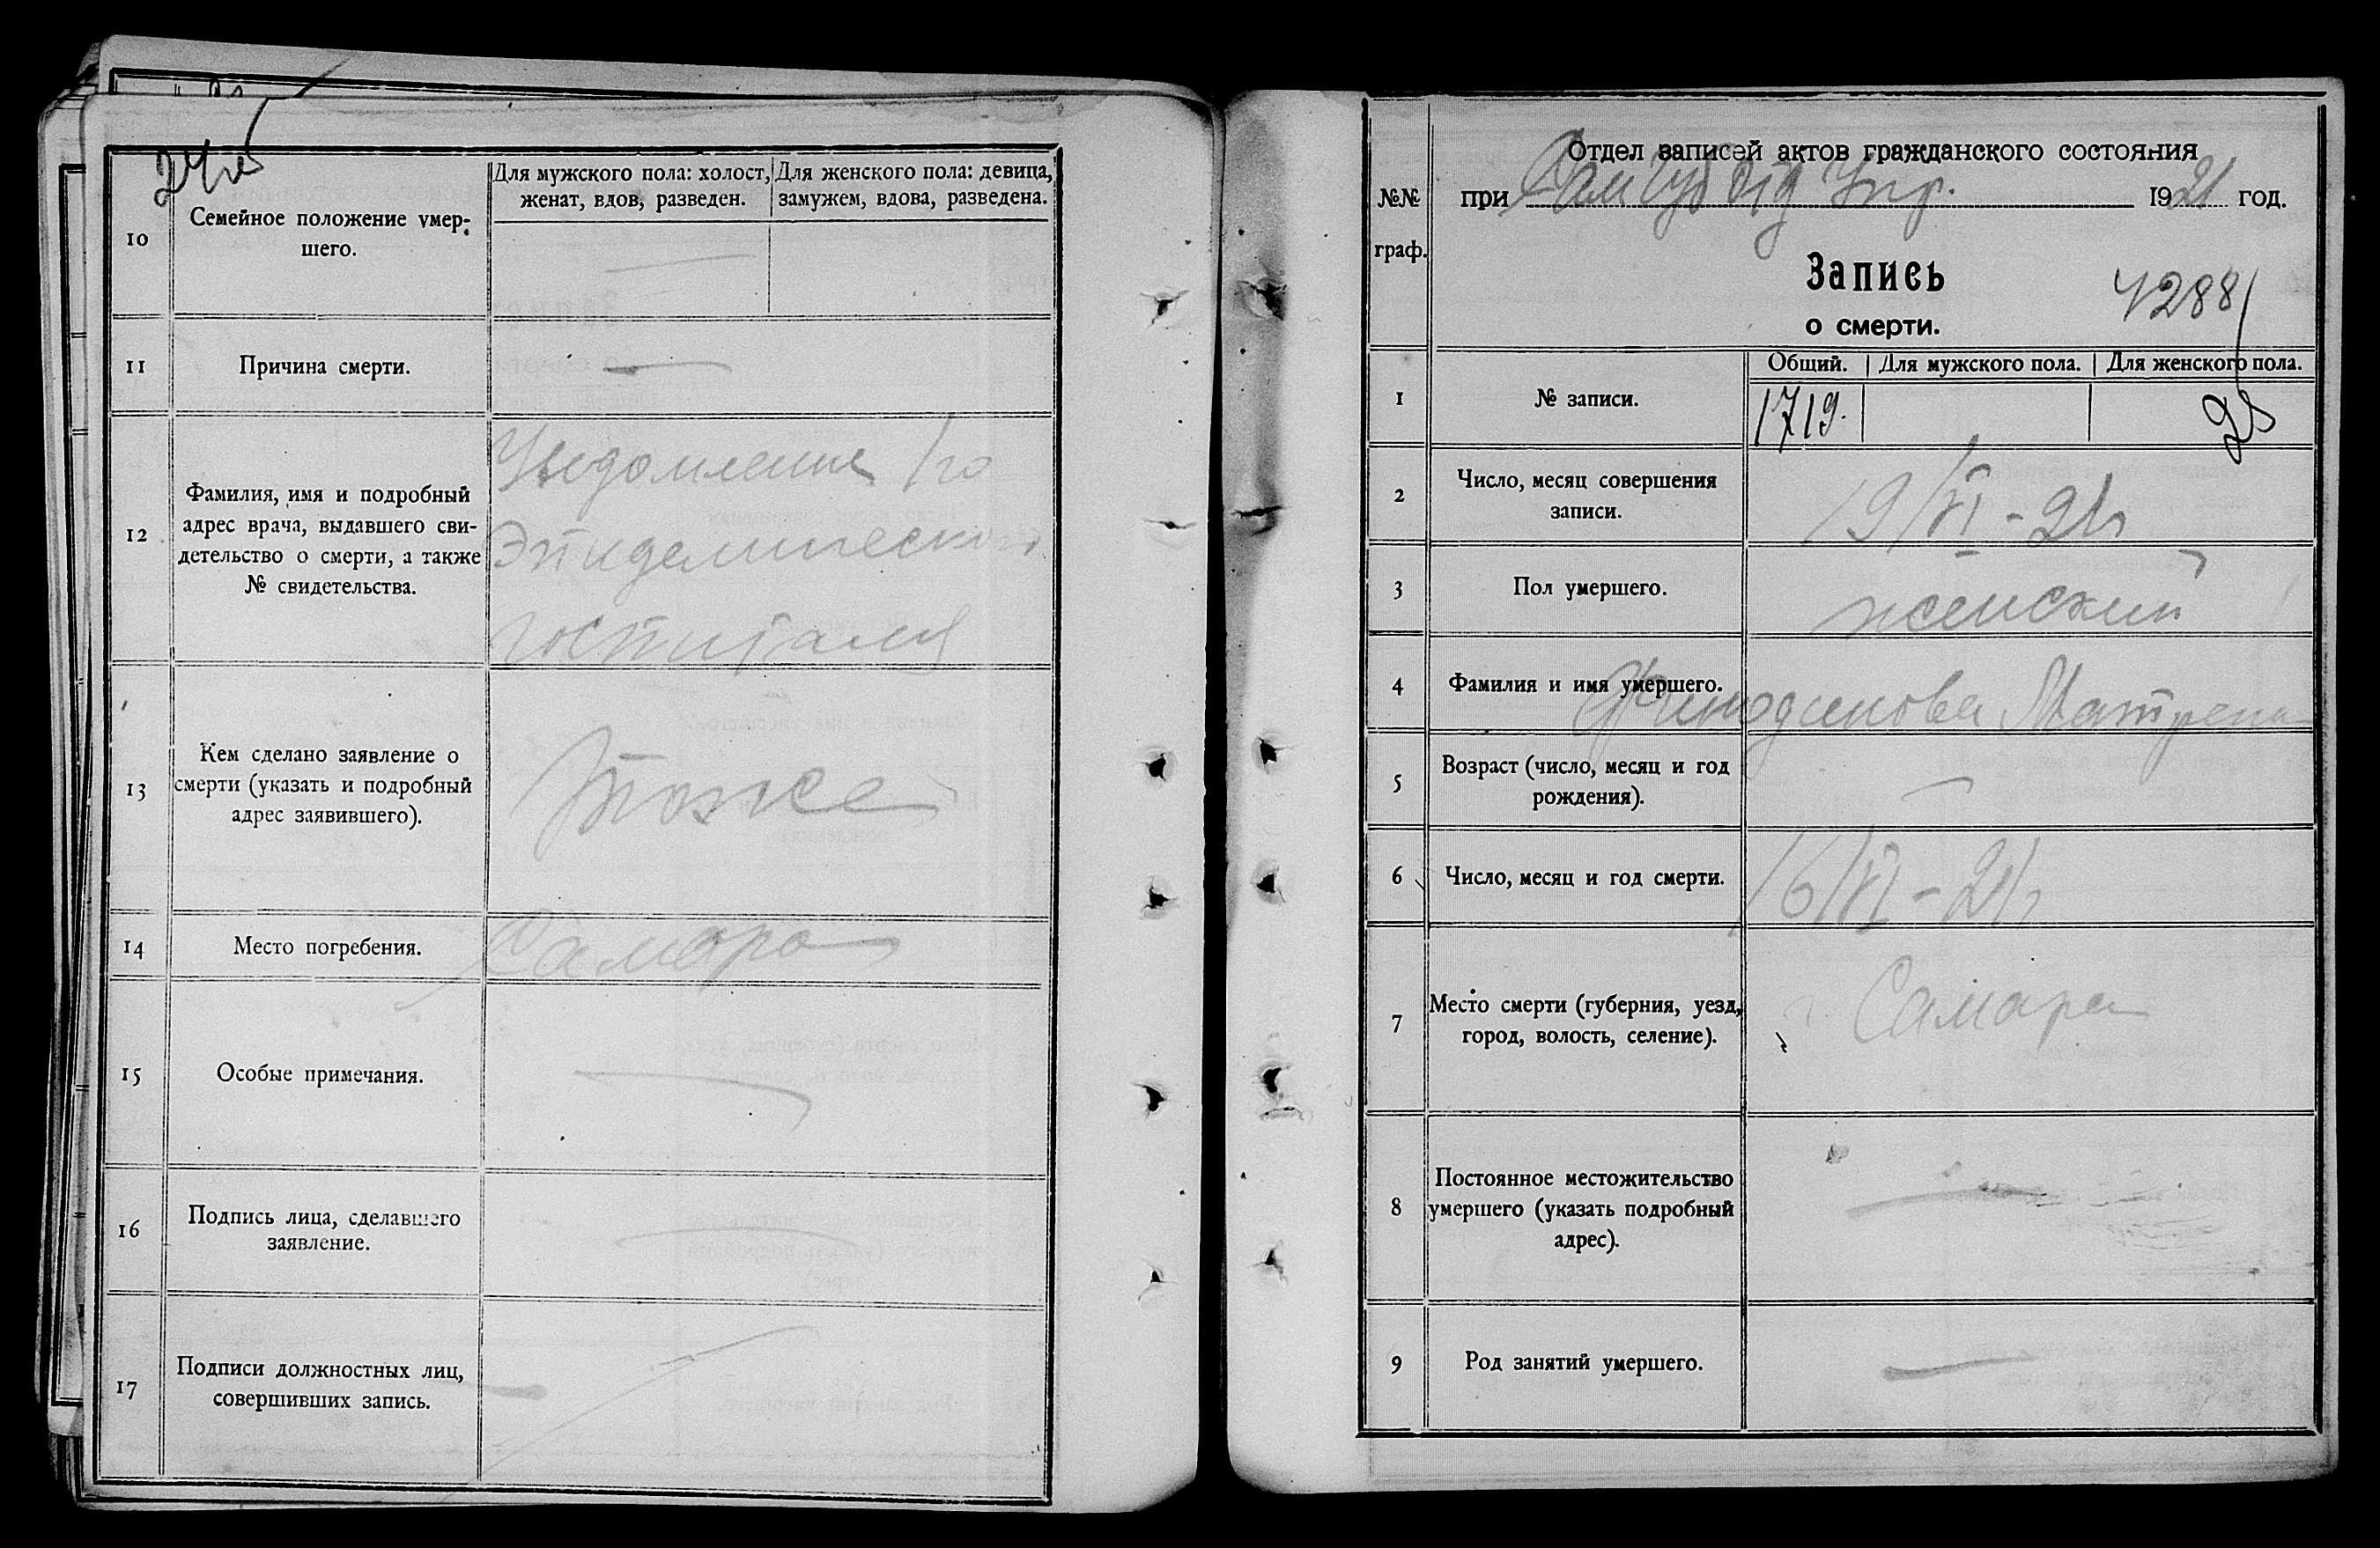 24об
10
Семейное положение умер-
шего.
Для мужского пола: холост,
женат, вдов, разведен.
Для женского пола: девица,
замужем, вдова, разведена.
11
Причина смерти.
12
Фамилия, имя и подробный
адрес врача, выдавшего сви-
детельство о смерти, а также
№ свидетельства.
Уведомление 1го
Эпидемического
госпиталя
13
Кем сделано заявление о
смерти (указать и подробный
адрес заявившего).
Тоже
14
Место погребения.
Самара
15
Особые примечания.
16
Подпись лица, сделавшего
заявление.
17
Подписи должностных лиц,
совершивших запись.
№№
граф.
Отдел записей актов гражданского состояния
при Самгуботд Упр. 1921 год.
Запись
о смерти.
4288
1
№ записи.
Общий. Для мужского пола. Для женского пола.
1719.
25
2
Число, месяц совершения
записи.
19/VI-21г
3
Пол умершего.
женский
4
Фамилия и имя умершего.
Матрена
5
Возраст (число, месяц и год
рождения).
6
Число, месяц и год смерти.
16/VI-21г
7
Место смерти (губерния, уезд,
город, волость, селение).
г. Самара
8
Постоянное местожительство
умершего (указать подробный
адрес).
9
Род занятий умершего.